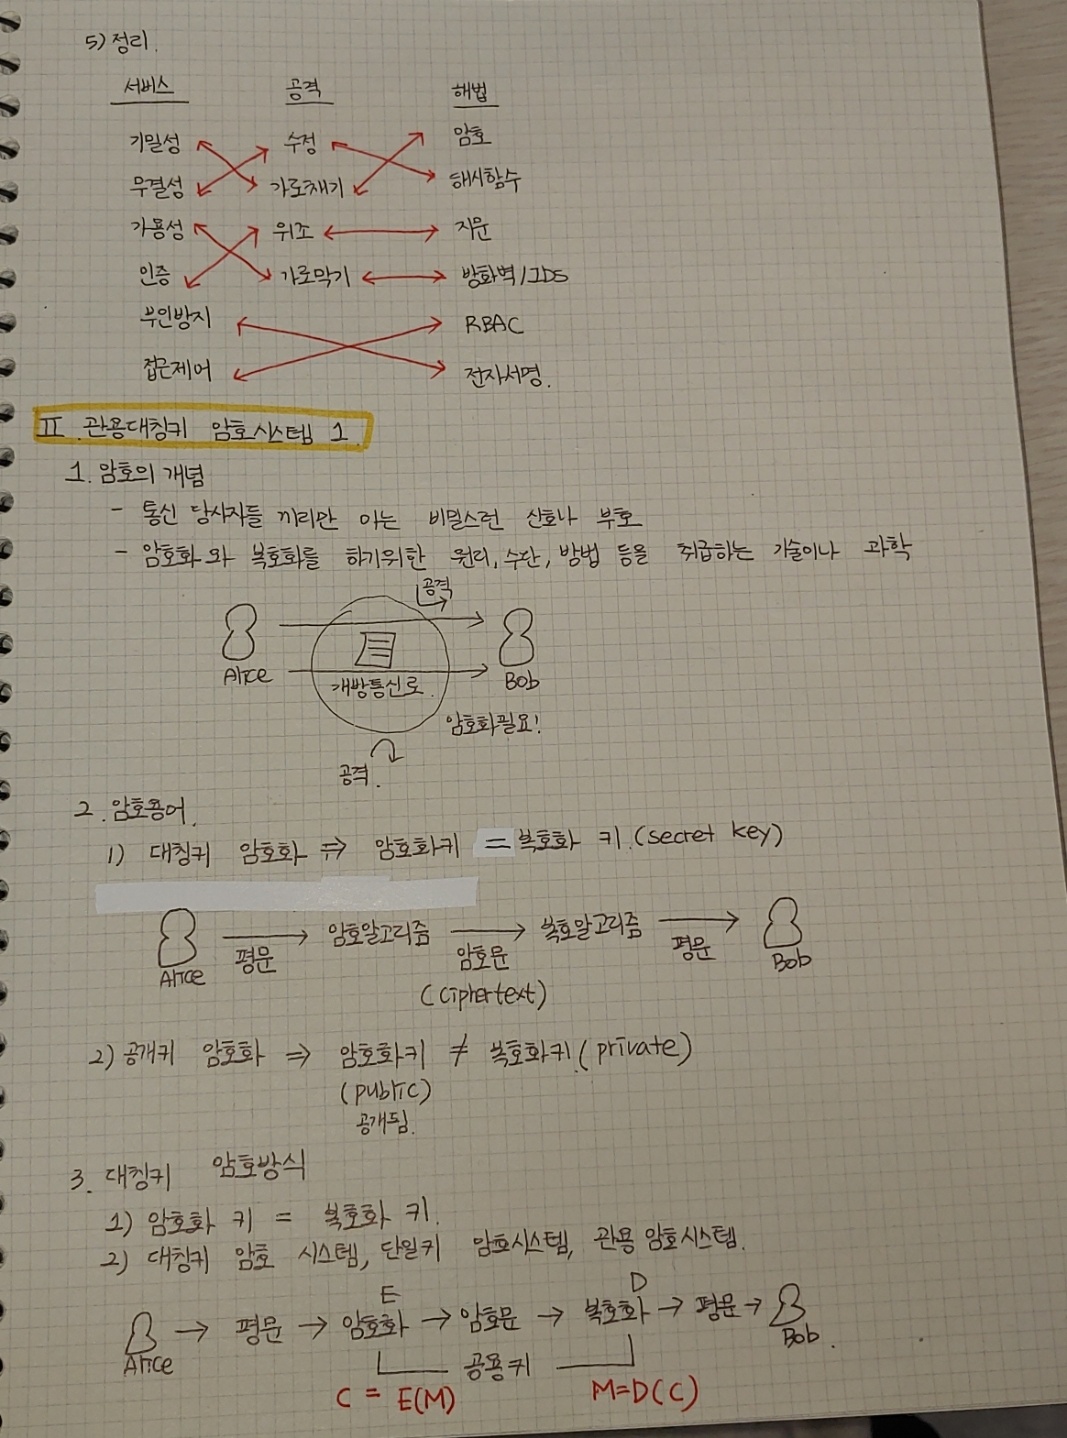 5) 정리.
서비스 공격 해법
기밀성 수정 암호
무결성 가로채기 해시함수
가용성 위조 지문
인증 가로막기 방화벽/IDS
부인방지 RBAC
접근제어 전자서명.
II. 관용대칭키 암호시스템 1.
1. 암호의 개념
- 통신 당사자들 끼리만 아는 비밀스런 신호나 부호
- 암호화와 복호화를 하기위한 원리, 수단, 방법 등을 취급하는 기술이나 과학
공격
Alice 개방통신로. Bob
암호화필요!
공격.
2. 암호용어.
1) 대칭키 암호화 ⇒ 암호화키 = 복호화 키. (secret key)
Alice 평문 → 암호알고리즘 → 암호문 복호알고리즘 → 평문 Bob
(ciphertext)
2) 공개키 암호화 ⇒ 암호화키 ≠ 복호화키 (private)
(public)
공개됨.
3. 대칭키 암호방식
1) 암호화 키 = 복호화 키.
2) 대칭키 암호 시스템, 단일키 암호시스템, 관용 암호시스템.
E D
Alice → 평문 → 암호화 → 암호문 → 복호화 → 평문 → Bob.
공용키
C = E(M) M=D(C)